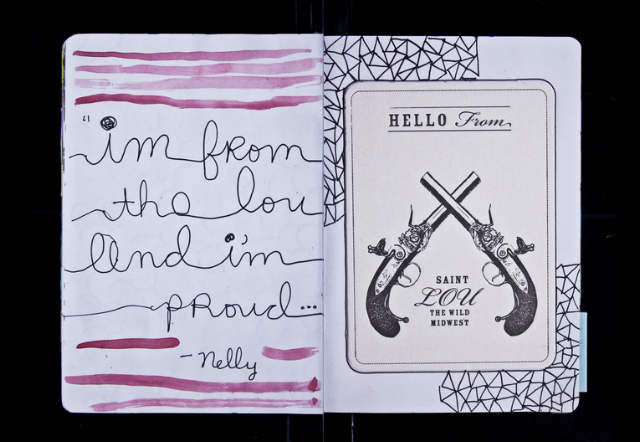 "im from
the lou
and i'm
proud...
- Nelly
HELLO From
SAINT
LOU
THE WILD
MIDWEST